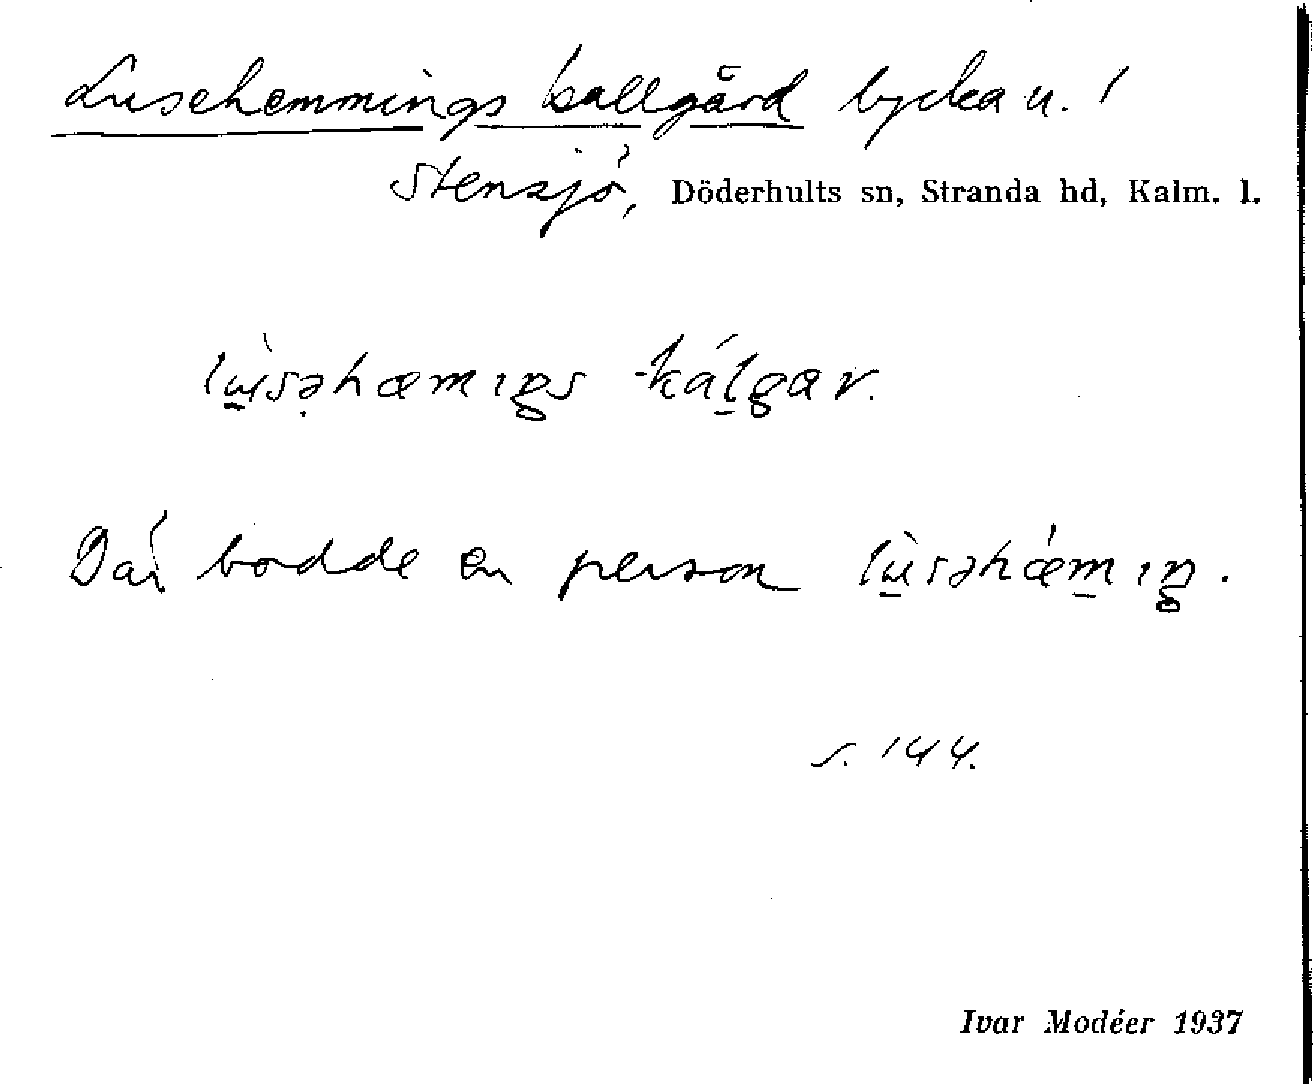 Lusehemmings kallgård lycka u. 1
Stensjö, Döderhults sn, Stranda hd, Kalm. l.
lùsəhæmıŋs -kálgar.
Där bodde en person lùsəhǽmıŋ.
s. 144.
Ivar Modéer 1937